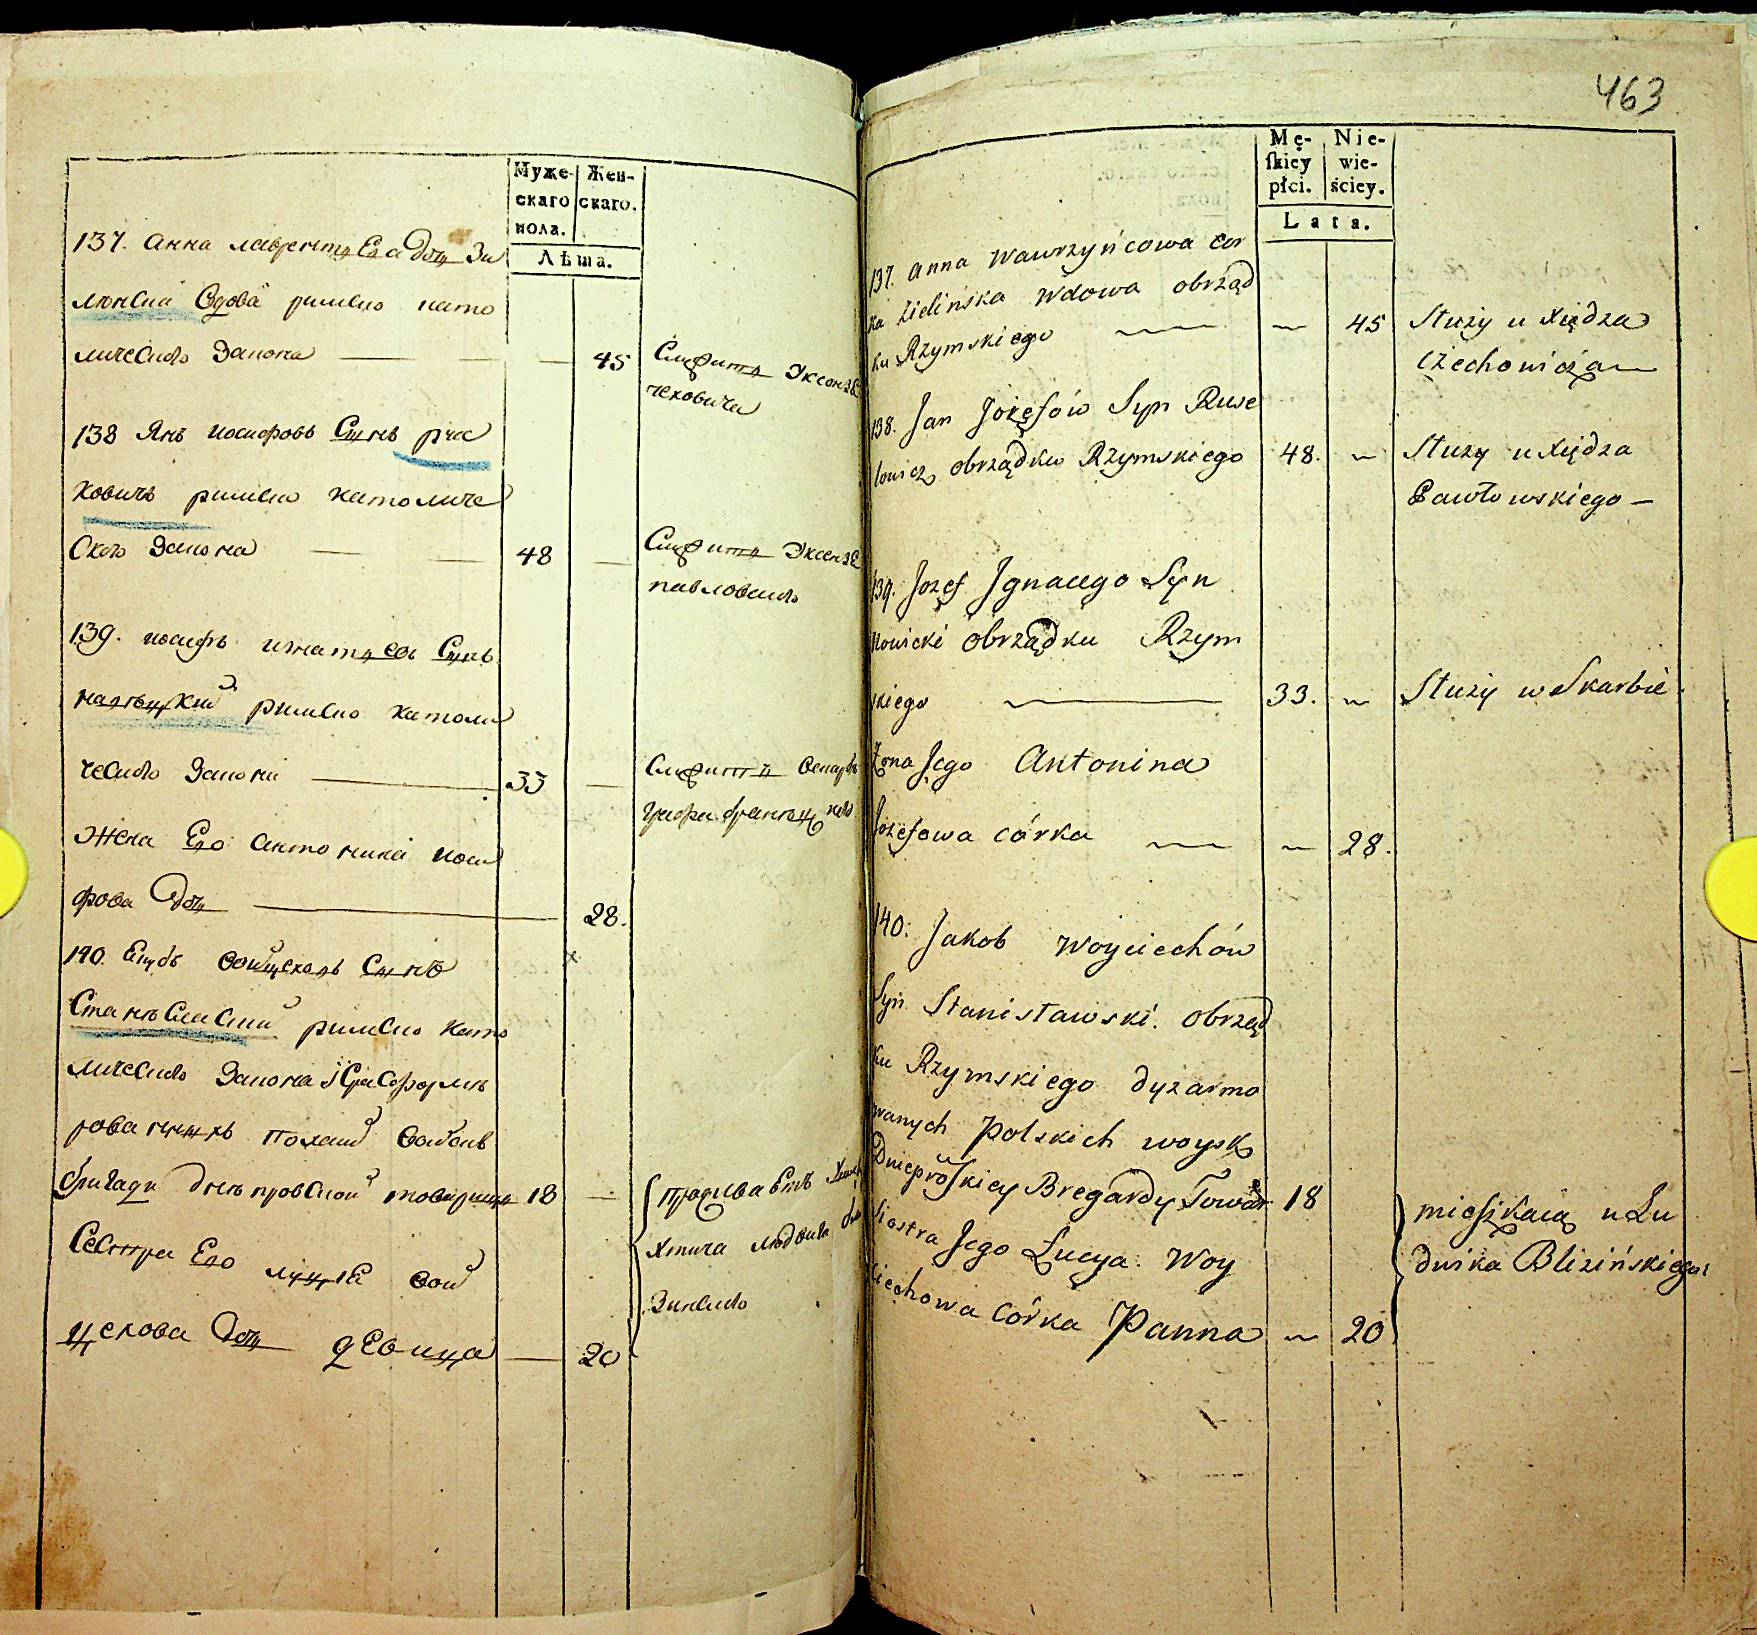 Муже-
скаго
пола.
Жен-
скаго.
Лѣта.
137. Анна лаврентц Ега дощ Зи
лѣнская Вдова римско като
лическаго Закона — 45
Слꙋжитъ Эксенза
чеховича
138 Янъ иосифовъ Сынъ рчс
ловичъ римско католиче
Скаго Закона — 48 —
Слꙋжитъ Эксенза
павловскаго
139. иосифъ игнатцева Сынъ
римско католи
ческаго Закона — 33 —
Слꙋжитъ
графа браницкаго
Жена Его антонина иоси
фова дощ — 28.
140. Якубъ войцеховъ Сынъ
Станѣславский римско като
лическаго Закона
рованныхъ полский войскъ
бригады днѣпровской товарища 18 —
Сестра Его луція вой
цехова дощ девица — 20
людвика
Зинскаго
463
Mę-
skiey
płci.
Nie-
wie-
ściey.
Lata.
137. Anna Wawrzyńcowa Cor
ka Zielińska Wdowa obrząd
ku Rzymskiego — — 45 Służy u Xiędza
Czechowicza —
138. Jan Jozefów Syn Ruse
lowicz obrządku Rzymskiego 48. — Służy u Xiędza
Pawłowskiego —
139. Jozef Jgnacego Syn
Nowicki obrządku Rzym
skiego — 33. — Służy w Skarbie.
Żona Jego Antonina
Jozefowa córka — — 28.
140: Jakob Woyciechów
Syn Stanisławski. obrząd
ku Rzymskiego dyzarmo
wanych Polskich woysk
Dnieprŏskiey Bregardy Towar. 18
Siostra Jego Łucya. Woy
ciechowa Córka Panna — 20
mieszkaią u Lu
dwika Blizińskiego